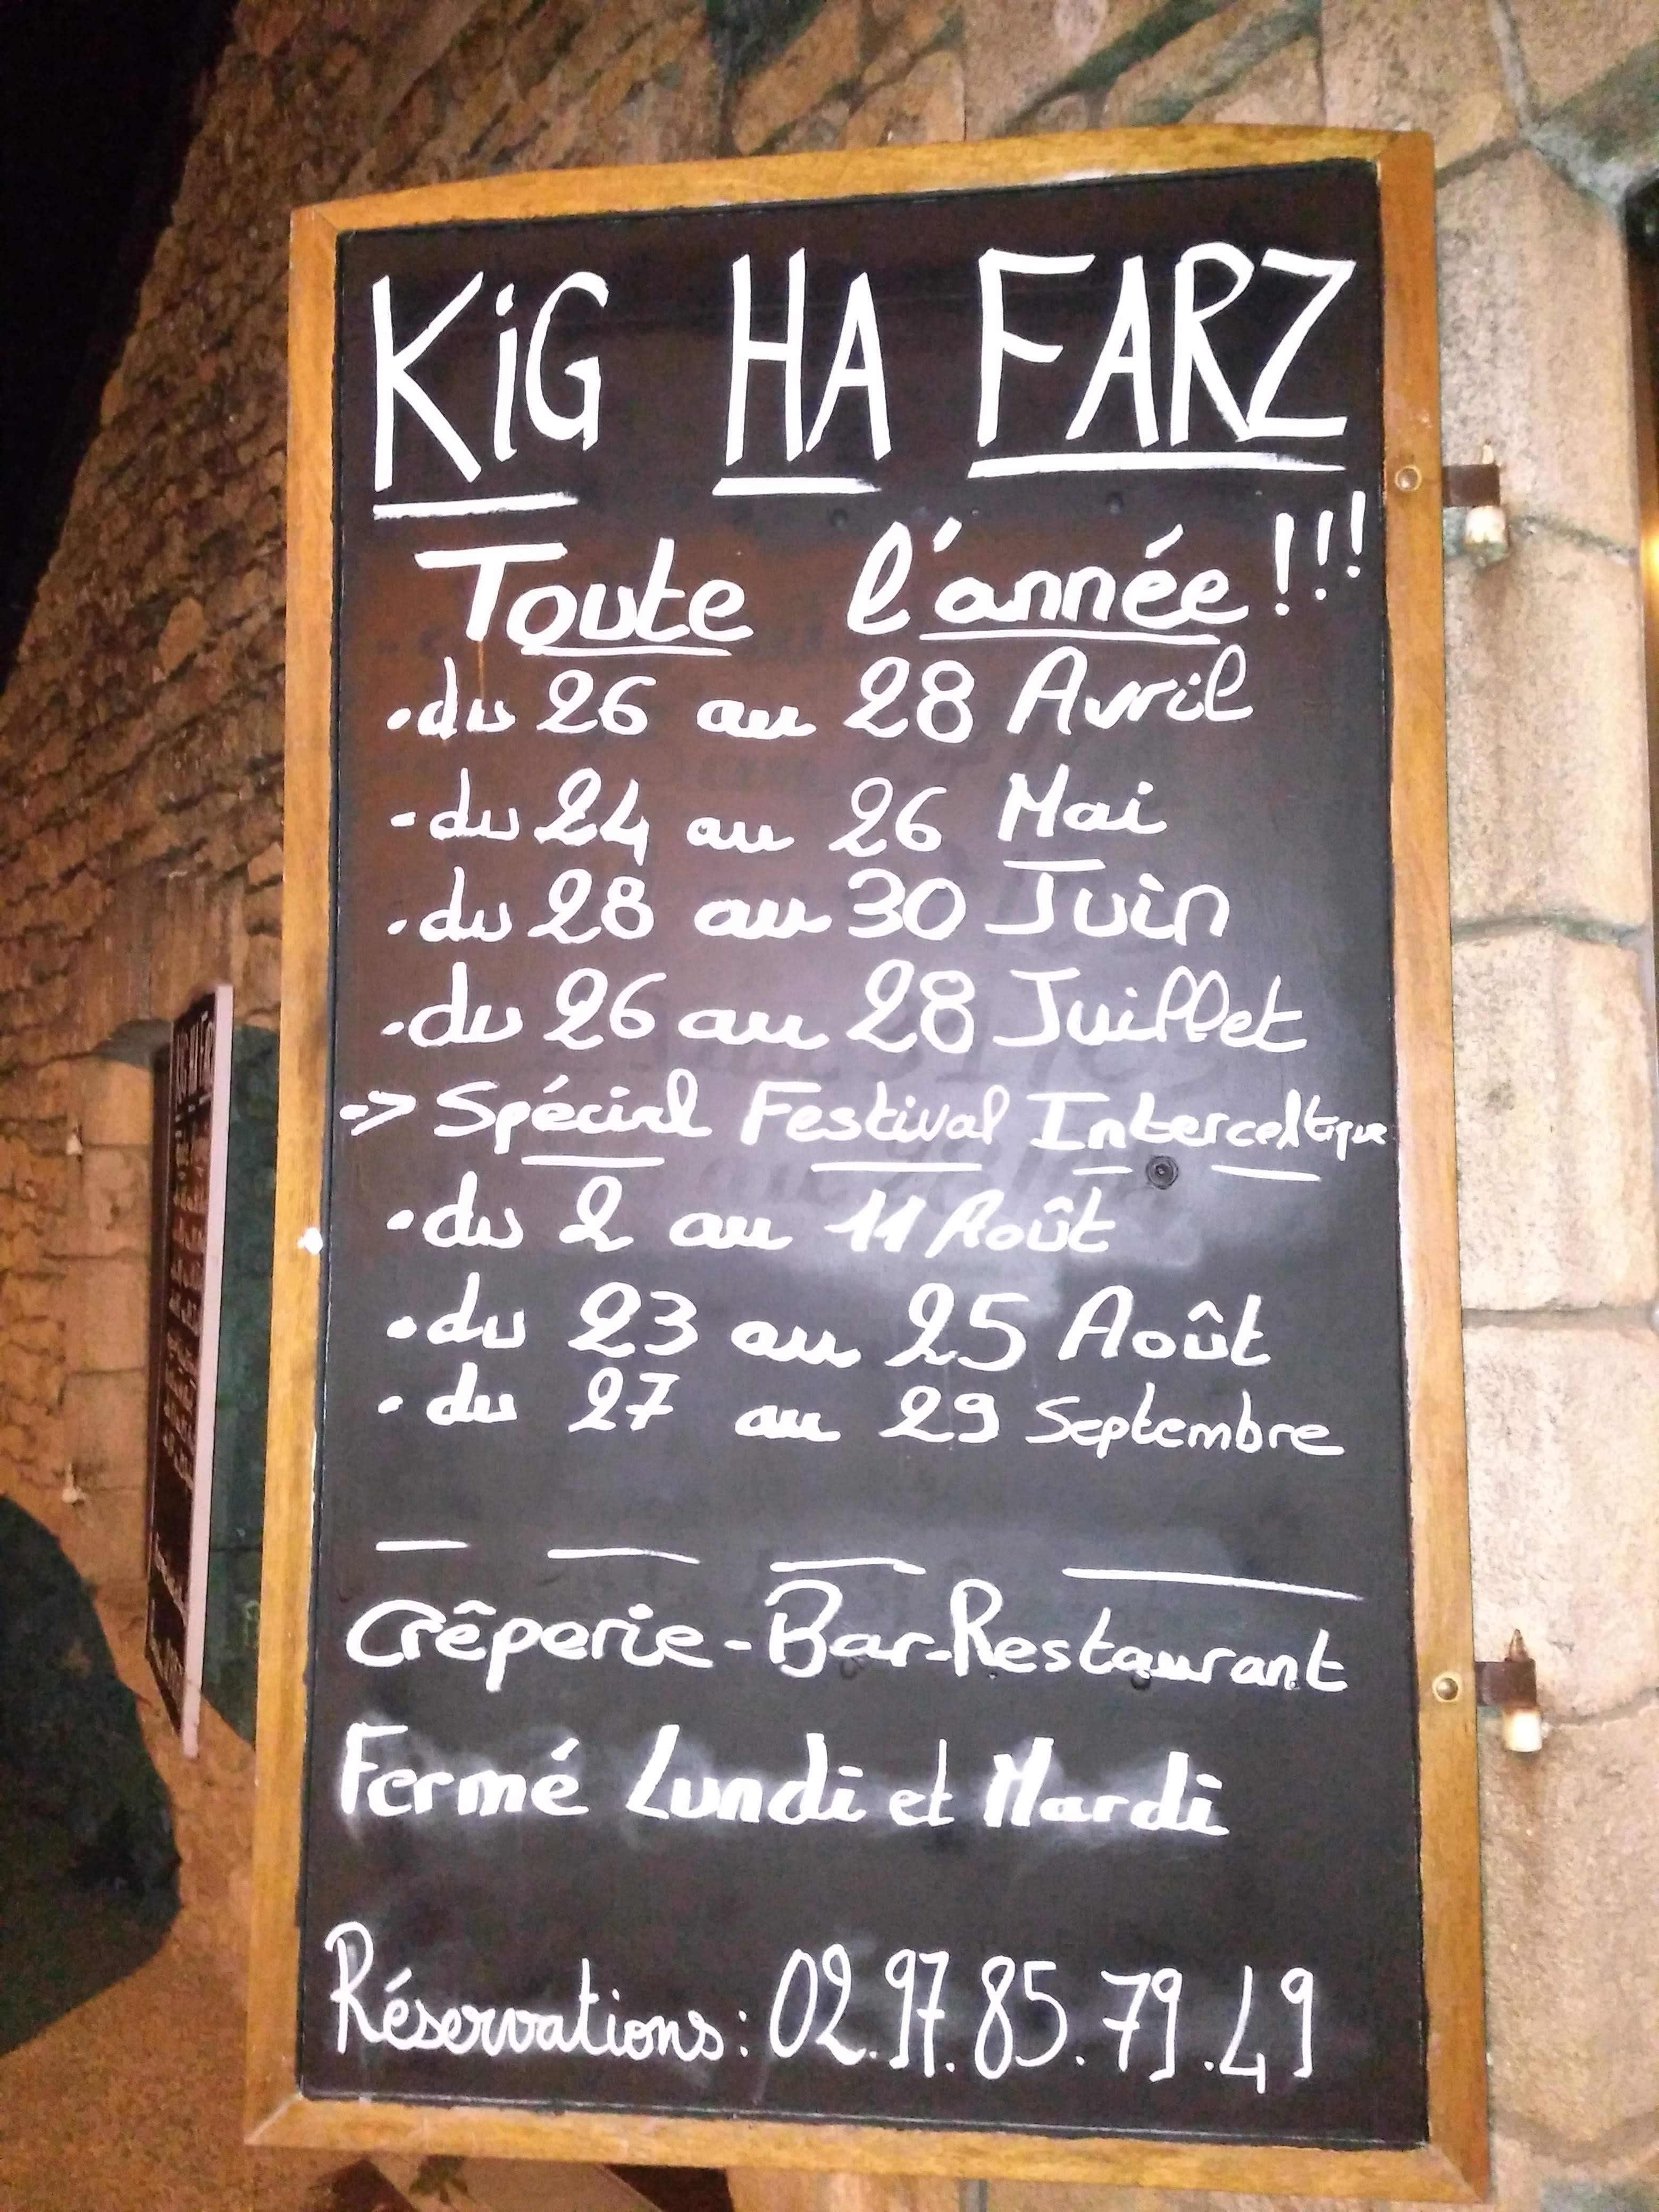 KiG HA FARZ
Toute l'année !!!
.du 26 au 28 Avril
-du 24 au 26 Mai
.du 28 au 30 Juin
.du 26 au 28 Juillet
-> Spécial Festival Interceltique
.du 2 au 11 Août
.du 23 au 25 Août
.du 27 au 29 Septembre
Crêperie-Bar-Restaurant
Fermé Lundi et Mardi
Réservations: 02.97.85.79.49